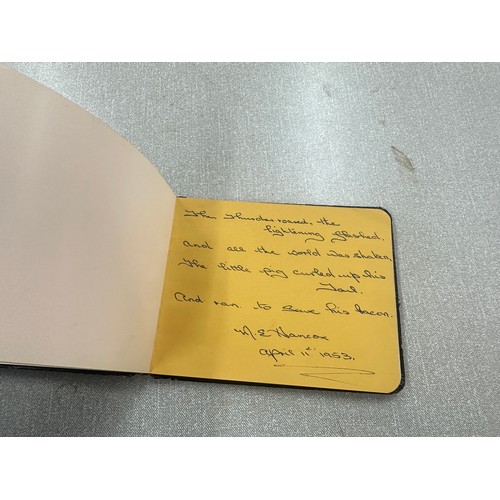 The Thunder roared, the
lightening flashed,
and all the world was shaken,
The little pig curled up his
Tail.
And ran to save his bacon.
M. E Hancox
April 11th 1953.